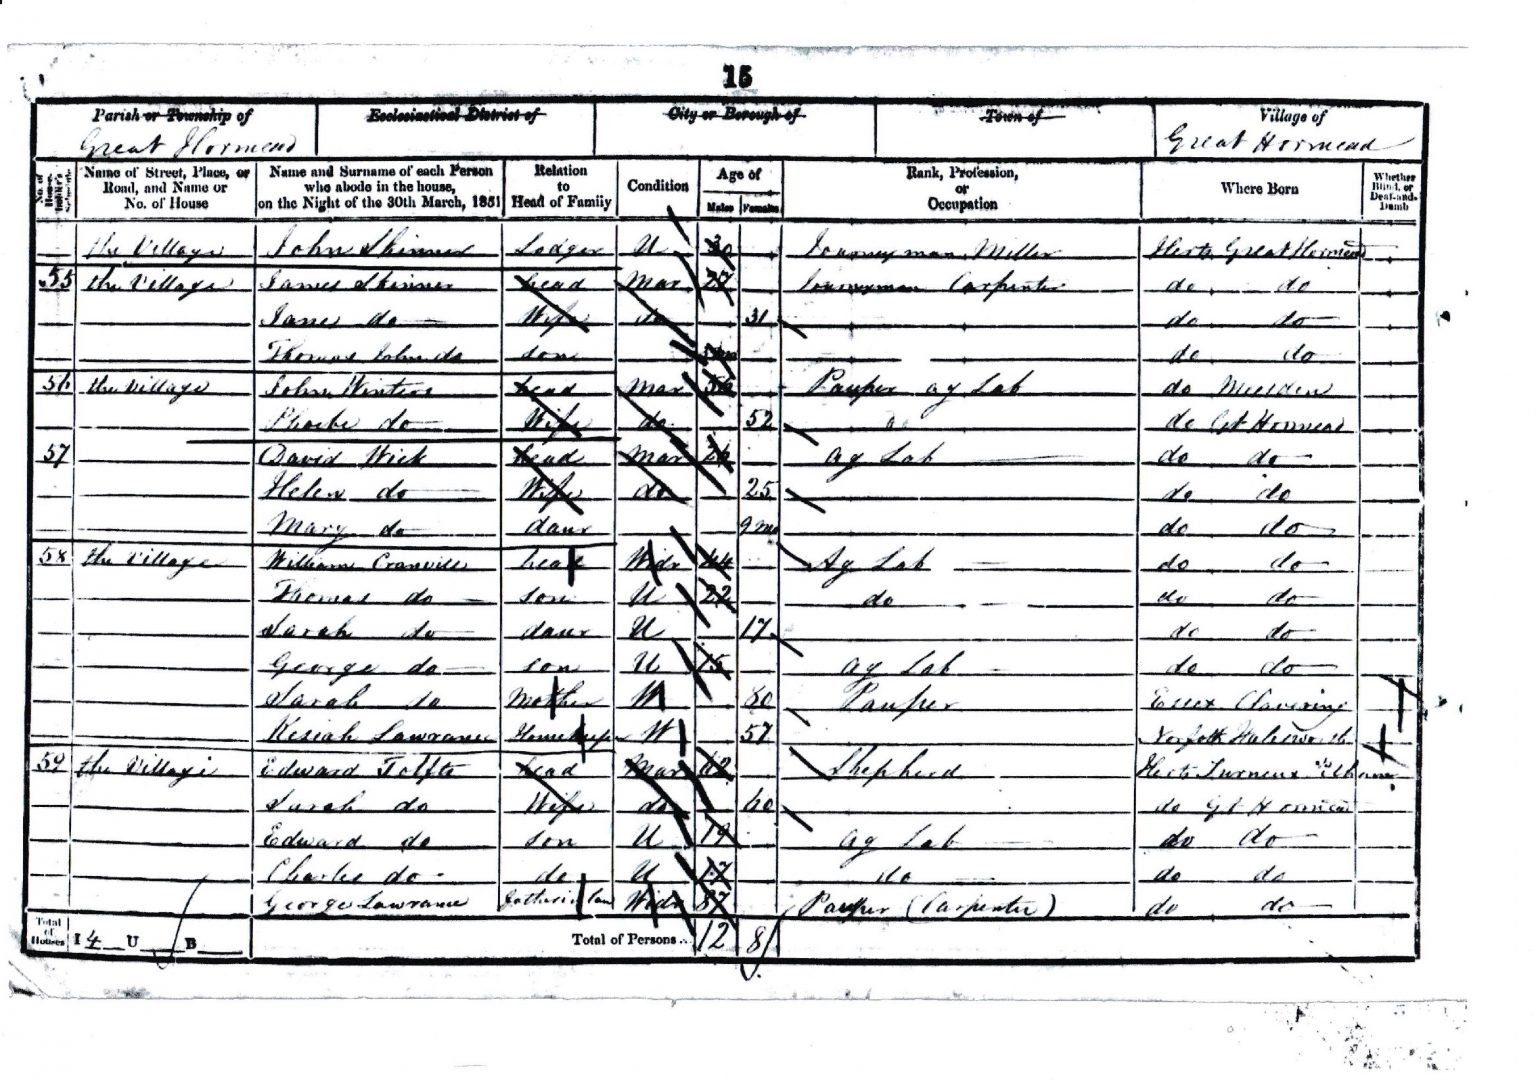 15
Parish or Township of Ecclesiastical District of City or Borough of Town of Village of
Great Hormead Great Hormead
No. of House Name of Street, Place, or Road, and Name or No. of House Name and Surname of each Person who abode in the house, on the Night of the 30th March, 1851 Relation to Head of Family Condition Age of Males Females Rank, Profession, or Occupation Where Born Whether Blind, or Deaf-and-Dumb
the Village John Skinner Lodger U 30 Journeyman Miller Herts Great Hormead
55 the Village James Skinner head Mar 27 Journeyman Carpenter do do
Jane do Wife do 31 do do
Thomas John do son do do
56 the Village John Winters head Mar 56 Pauper ag Lab do Meesden
Phoebe do Wife do 52 do Gt Hormead
57 David Wick head Mar 26 ag Lab do do
Helen do Wife do 25 do do
Mary do daur 9 mo do do
58 the Village William Cranville head Widr 44 Ag Lab do do
Thomas do son U 22 do do do
Sarah do daur U 17 do do
George do son U 15 ag Lab do do
Sarah do Mother W 80 Pauper Essex Clavering
Kesiah Lawrance Housekeeper W 57 Norfolk
59 the Village Edward head Mar 62 Shepherd Herts Furneux
Sarah do Wife do 60 do Gt Hormead
Edward do son U 19 ag Lab do do
Charles do do U 17 do do do
George Lawrance Father in law Widr 87 Pauper (Carpenter) do do
Total of Houses I 4 U B Total of Persons.. 12 8